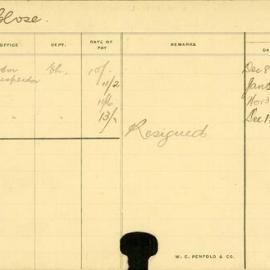 Close.
OFFICE DEPT. RATE OF PAY REMARKS DA
Inspector Ch. 10/- Dec 8
11/2 Jan
11/6 Nov 3
" " 13/- Dec 1
Resigned
W. C. PENFOLD & CO.